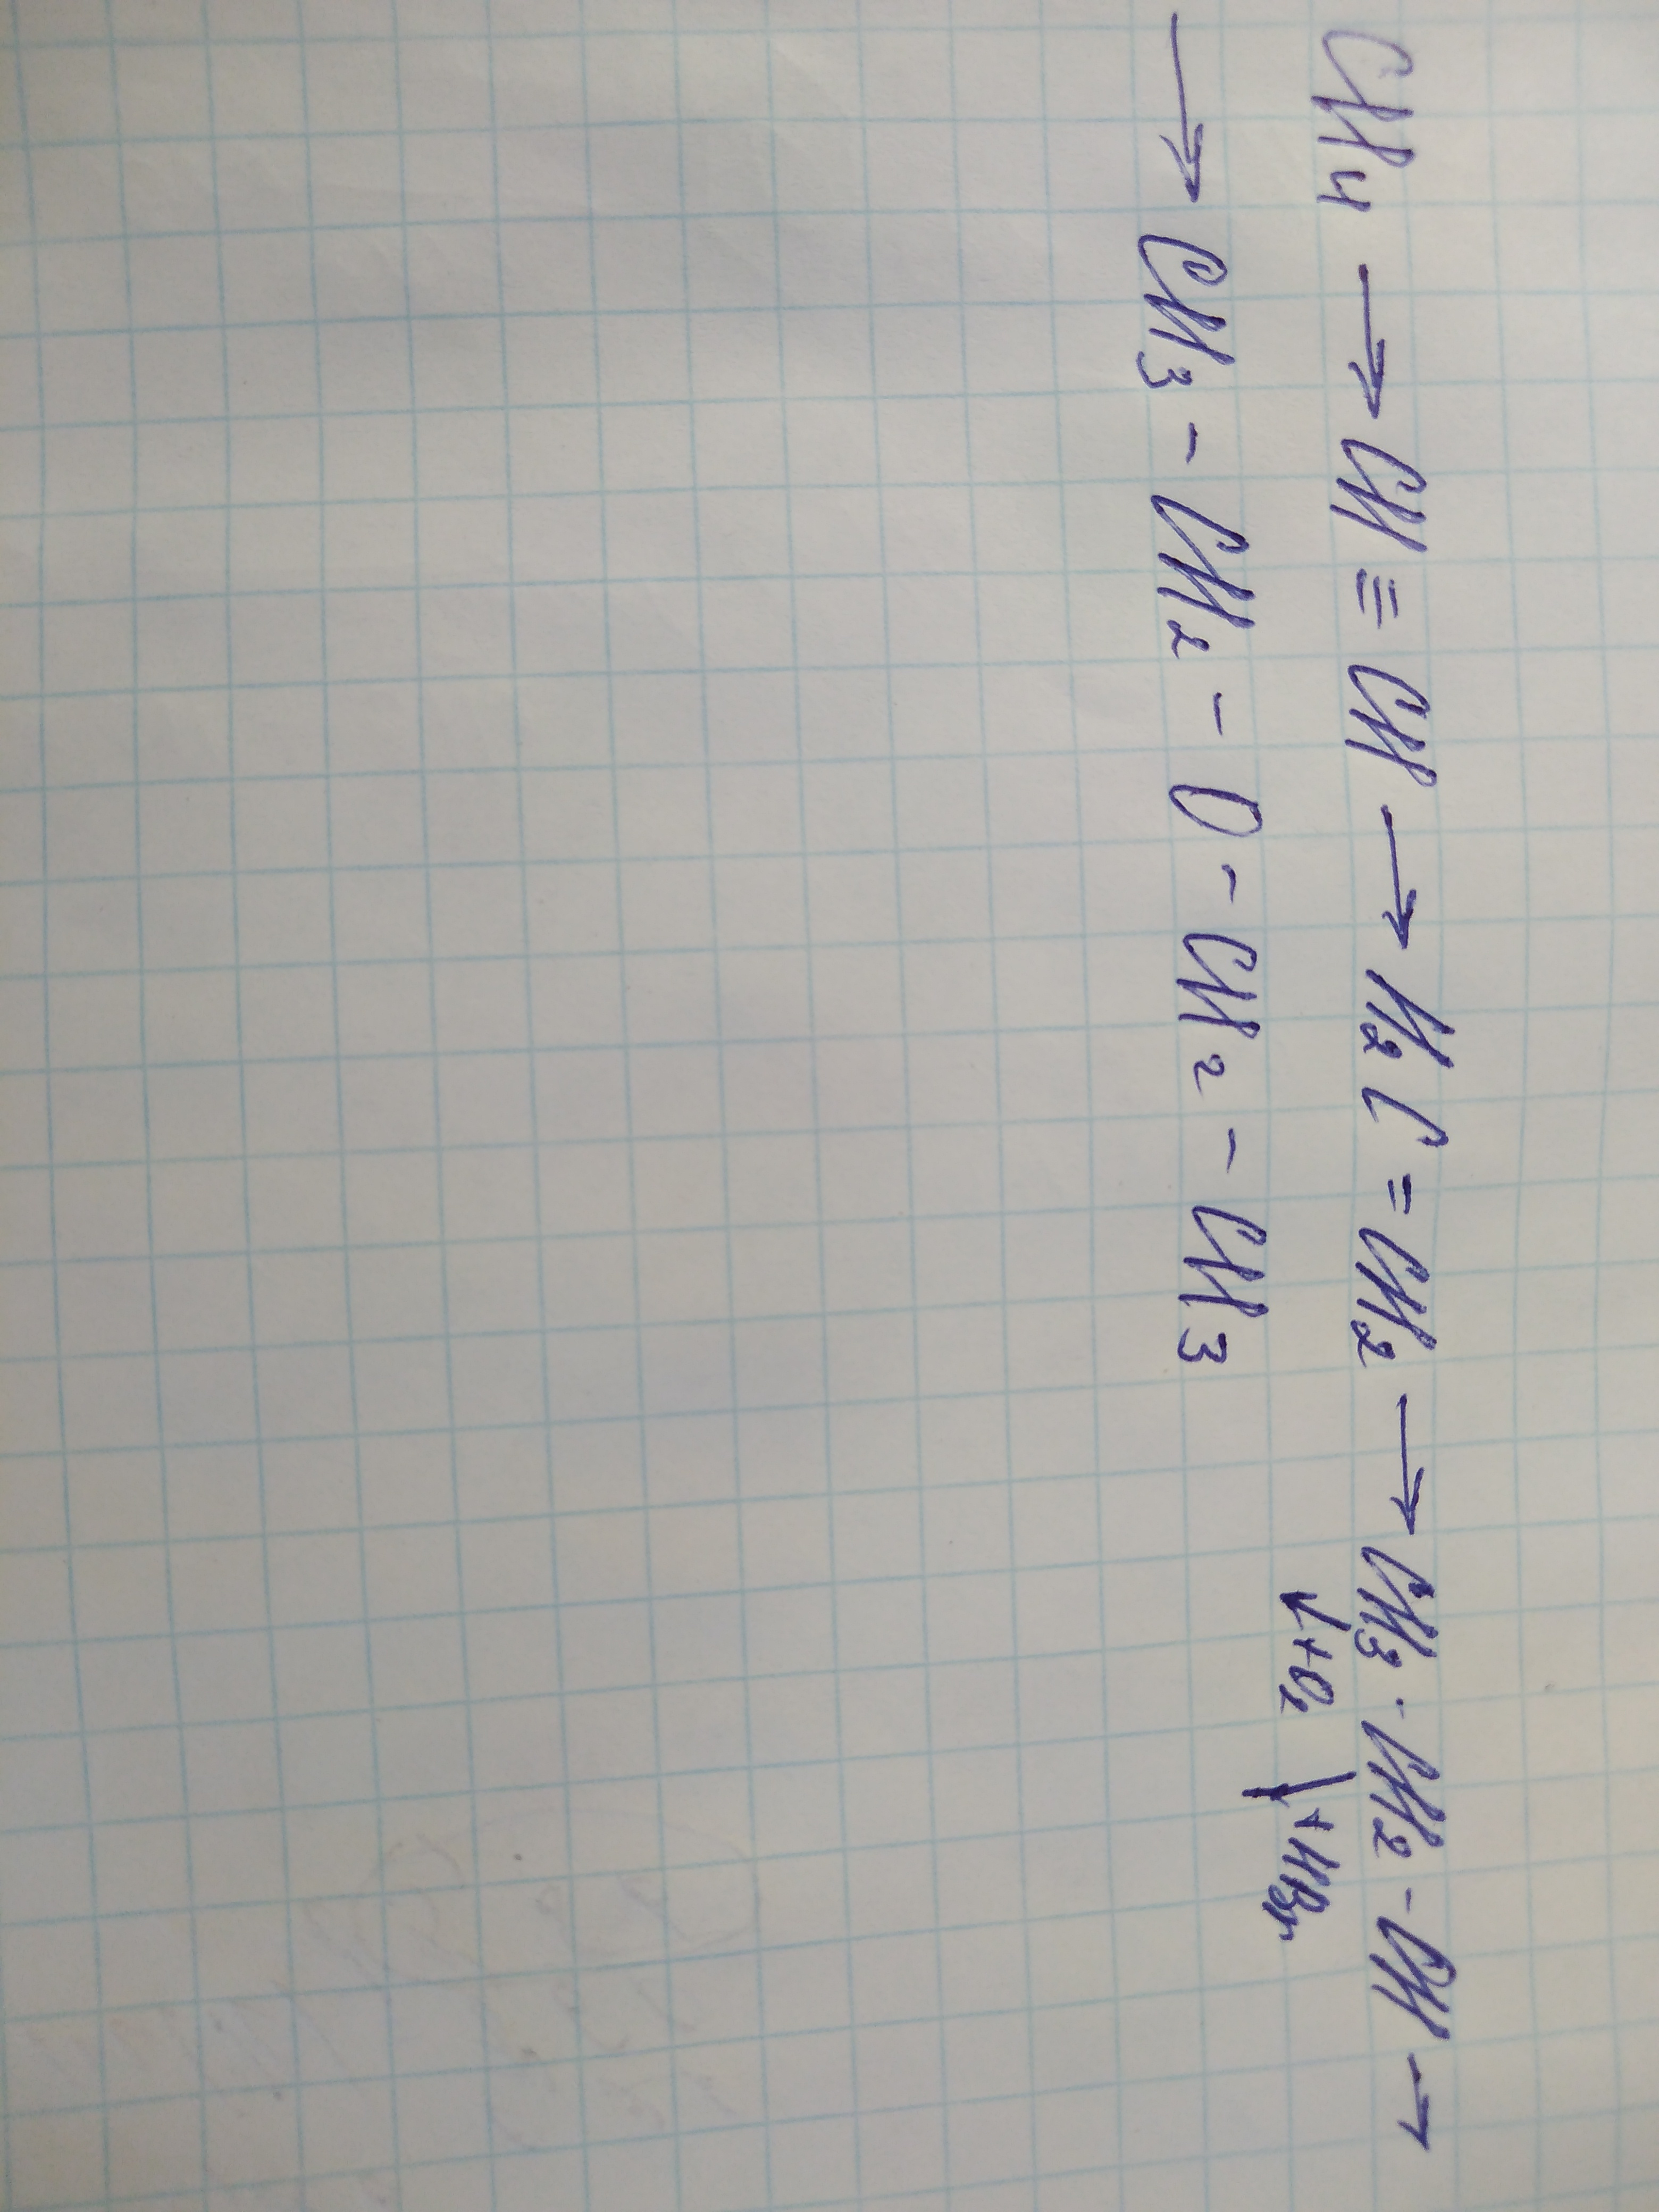 CH4 → CH ≡ CH → H2C = CH2 → CH3 - CH2 - OH →
↓ +O2 ↓ +HBr
→ CH3 - CH2 - O - CH2 - CH3